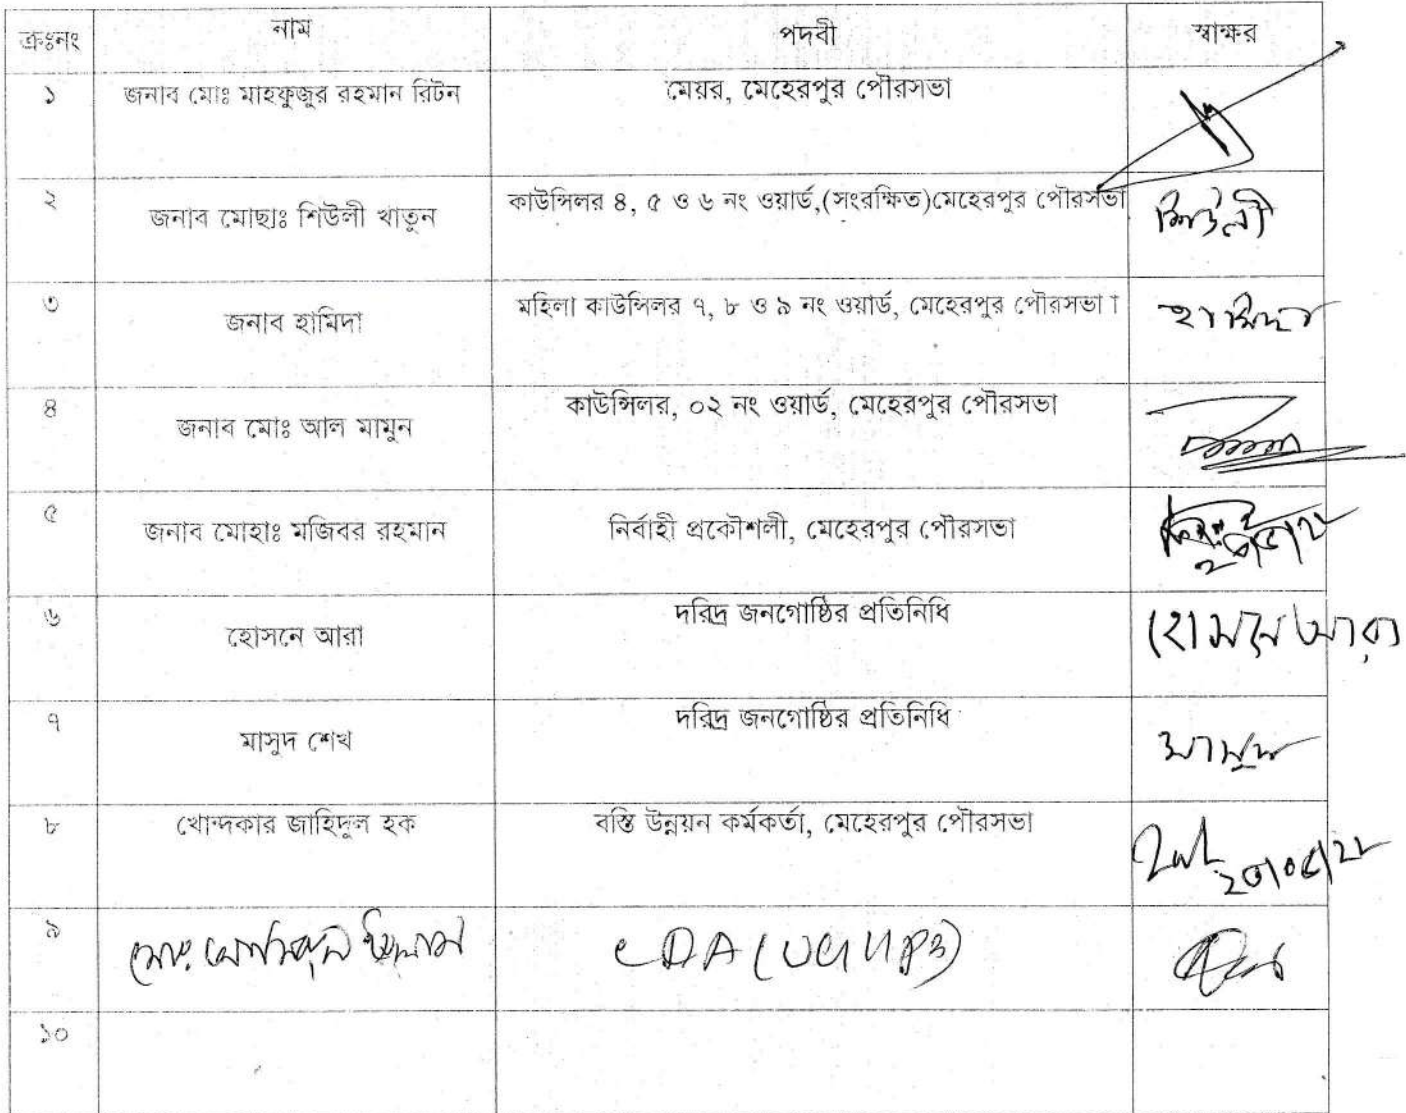 ক্রঃনং নাম পদবী স্বাক্ষর
১ জনাব মোঃ মাহফুজুর রহমান রিটন মেয়র, মেহেরপুর পৌরসভা
২ জনাব মোছাঃ শিউলী খাতুন কাউন্সিলর ৪, ৫ ও ৬ নং ওয়ার্ড,(সংরক্ষিত)মেহেরপুর পৌরসভা শিউলী
৩ জনাব হামিদা মহিলা কাউন্সিলর ৭, ৮ ও ৯ নং ওয়ার্ড, মেহেরপুর পৌরসভা । হামিদা
৪ জনাব মোঃ আল মামুন কাউন্সিলর, ০২ নং ওয়ার্ড, মেহেরপুর পৌরসভা
৫ জনাব মোহাঃ মজিবর রহমান নির্বাহী প্রকৌশলী, মেহেরপুর পৌরসভা
৬ হোসনে আরা দরিদ্র জনগোষ্ঠির প্রতিনিধি হোসনে আরা
৭ মাসুদ শেখ দরিদ্র জনগোষ্ঠির প্রতিনিধি মাসুদ
৮ খোন্দকার জাহিদুল হক বস্তি উন্নয়ন কর্মকর্তা, মেহেরপুর পৌরসভা
৯ মোঃ
১০